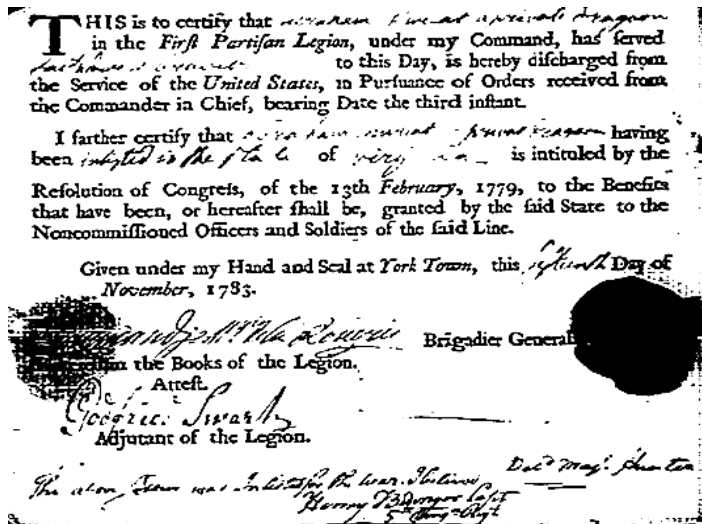 THIS is to certify that abraham a private dragoon
in the First Partisan Legion, under my Command, has served
to this Day, is hereby discharged from
the Service of the United States, in Pursuance of Orders received from
the Commander in Chief, bearing Date the third instant.
I farther certify that abraham private dragoon having
been inlisted in the State of is intituled by the
Resolution of Congress, of the 13th February, 1779, to the Benefits
that have been, or hereafter shall be, granted by the said State to the
Noncommissioned Officers and Soldiers of the said Line.
Given under my Hand and Seal at York Town, this Day of
November, 1783.
Brigadier General
in the Books of the Legion.
Attest.
Swartz
Adjutant of the Legion.
The above was Inlisted for the war I believe
Henry Capt